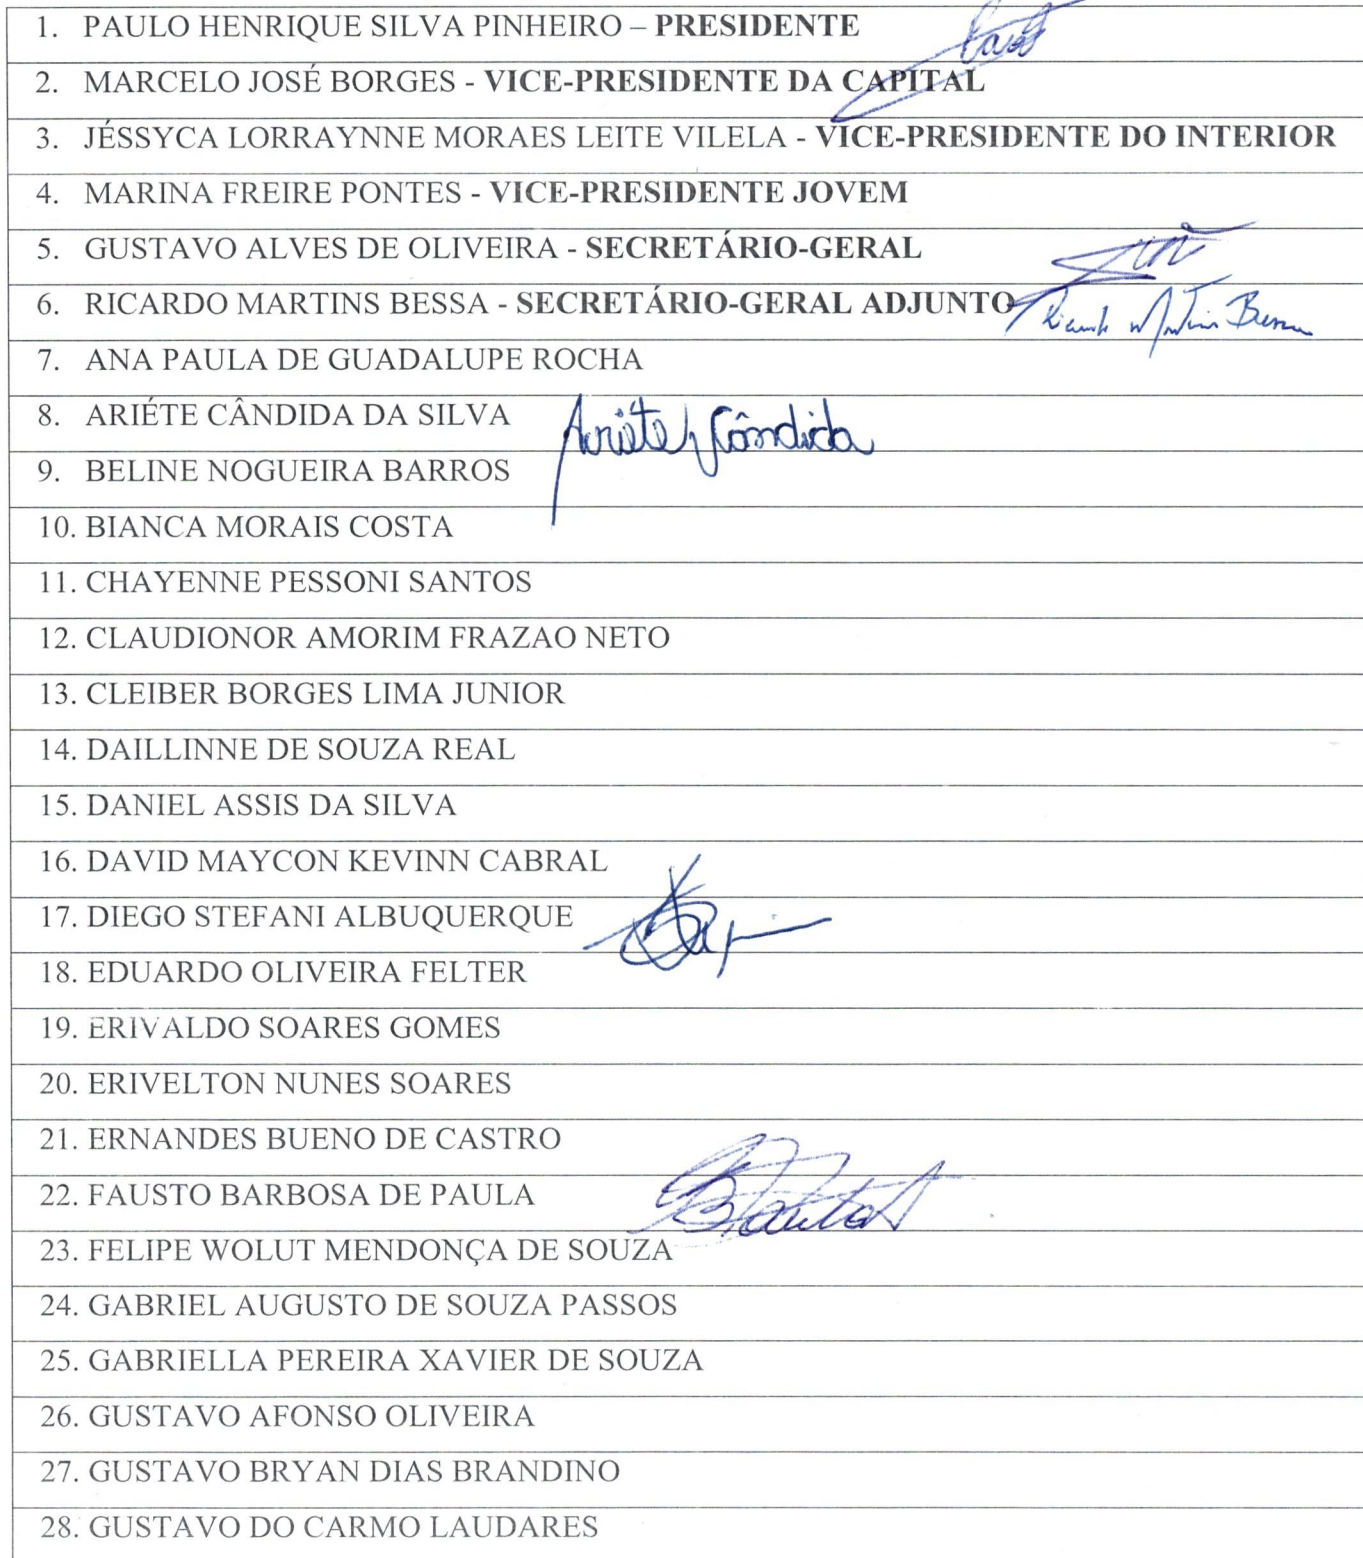 1. PAULO HENRIQUE SILVA PINHEIRO – PRESIDENTE
2. MARCELO JOSÉ BORGES - VICE-PRESIDENTE DA CAPITAL
3. JÉSSYCA LORRAYNNE MORAES LEITE VILELA - VICE-PRESIDENTE DO INTERIOR
4. MARINA FREIRE PONTES - VICE-PRESIDENTE JOVEM
5. GUSTAVO ALVES DE OLIVEIRA - SECRETÁRIO-GERAL
6. RICARDO MARTINS BESSA - SECRETÁRIO-GERAL ADJUNTO
7. ANA PAULA DE GUADALUPE ROCHA
8. ARIÉTE CÂNDIDA DA SILVA
Ariéte Cândida
9. BELINE NOGUEIRA BARROS
10. BIANCA MORAIS COSTA
11. CHAYENNE PESSONI SANTOS
12. CLAUDIONOR AMORIM FRAZAO NETO
13. CLEIBER BORGES LIMA JUNIOR
14. DAILLINNE DE SOUZA REAL
15. DANIEL ASSIS DA SILVA
16. DAVID MAYCON KEVINN CABRAL
17. DIEGO STEFANI ALBUQUERQUE
18. EDUARDO OLIVEIRA FELTER
19. ERIVALDO SOARES GOMES
20. ERIVELTON NUNES SOARES
21. ERNANDES BUENO DE CASTRO
22. FAUSTO BARBOSA DE PAULA
23. FELIPE WOLUT MENDONÇA DE SOUZA
24. GABRIEL AUGUSTO DE SOUZA PASSOS
25. GABRIELLA PEREIRA XAVIER DE SOUZA
26. GUSTAVO AFONSO OLIVEIRA
27. GUSTAVO BRYAN DIAS BRANDINO
28. GUSTAVO DO CARMO LAUDARES